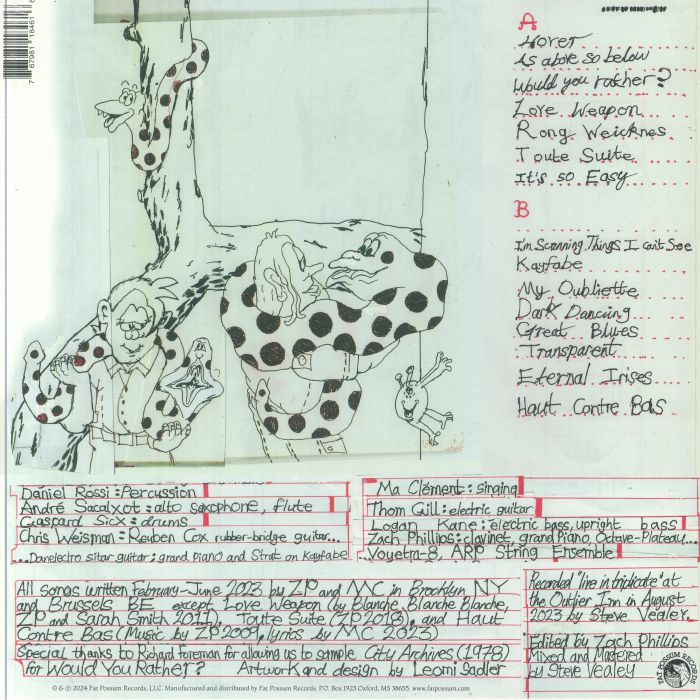 7 67981 18461 6
A
Hover
As above so below
Would you rather?
Love Weapon
Rong Weicknes
Toute Suite
It's so Easy
B
I'm Scanning Things I can't See
Kayfabe
My Oubliette
Dark Dancing
Great Blues
Transparent
Eternal Irises
Haut Contre Bas
Daniel Rossi : Percussion
André Sacalxot : alto saxophone, flute
Gaspard Sicx : drums
Chris Weisman : Reuben Cox rubber-bridge guitar...
...Danelectro sitar guitar ; grand piano and Strat on Kayfabe
Ma Clément : singing
Thom Gill : electric guitar
Logan Kane : electric bass, upright bass
Zach Phillips : clavinet, grand Piano, Octave-Plateau...
...Voyetra-8, ARP String Ensemble
All songs written February-June 2023 by ZP and MC in Brooklyn NY
and Brussels BE except Love Weapon (by Blanche Blanche Blanche,
ZP and Sarah Smith 2011), Toute Suite (ZP 2018), and Haut
Contre Bas (Music by ZP 2009, lyrics by MC 2023)
Special thanks to Richard Foreman for allowing us to sample City Archives (1978)
for Would You Rather? Artwork and design by Leomi Sadler
Recorded "live in triplicate" at
the Outlier Inn in August
2023 by Steve Vealey.
Edited by Zach Phillips
Mixed and Mastered
by Steve Vealey
FAT POSSUM RECORDS
℗ & © 2024 Fat Possum Records, LLC. Manufactured and distributed by Fat Possum Records. P.O. Box 1923 Oxford, MS 38655. www.fatpossum.com